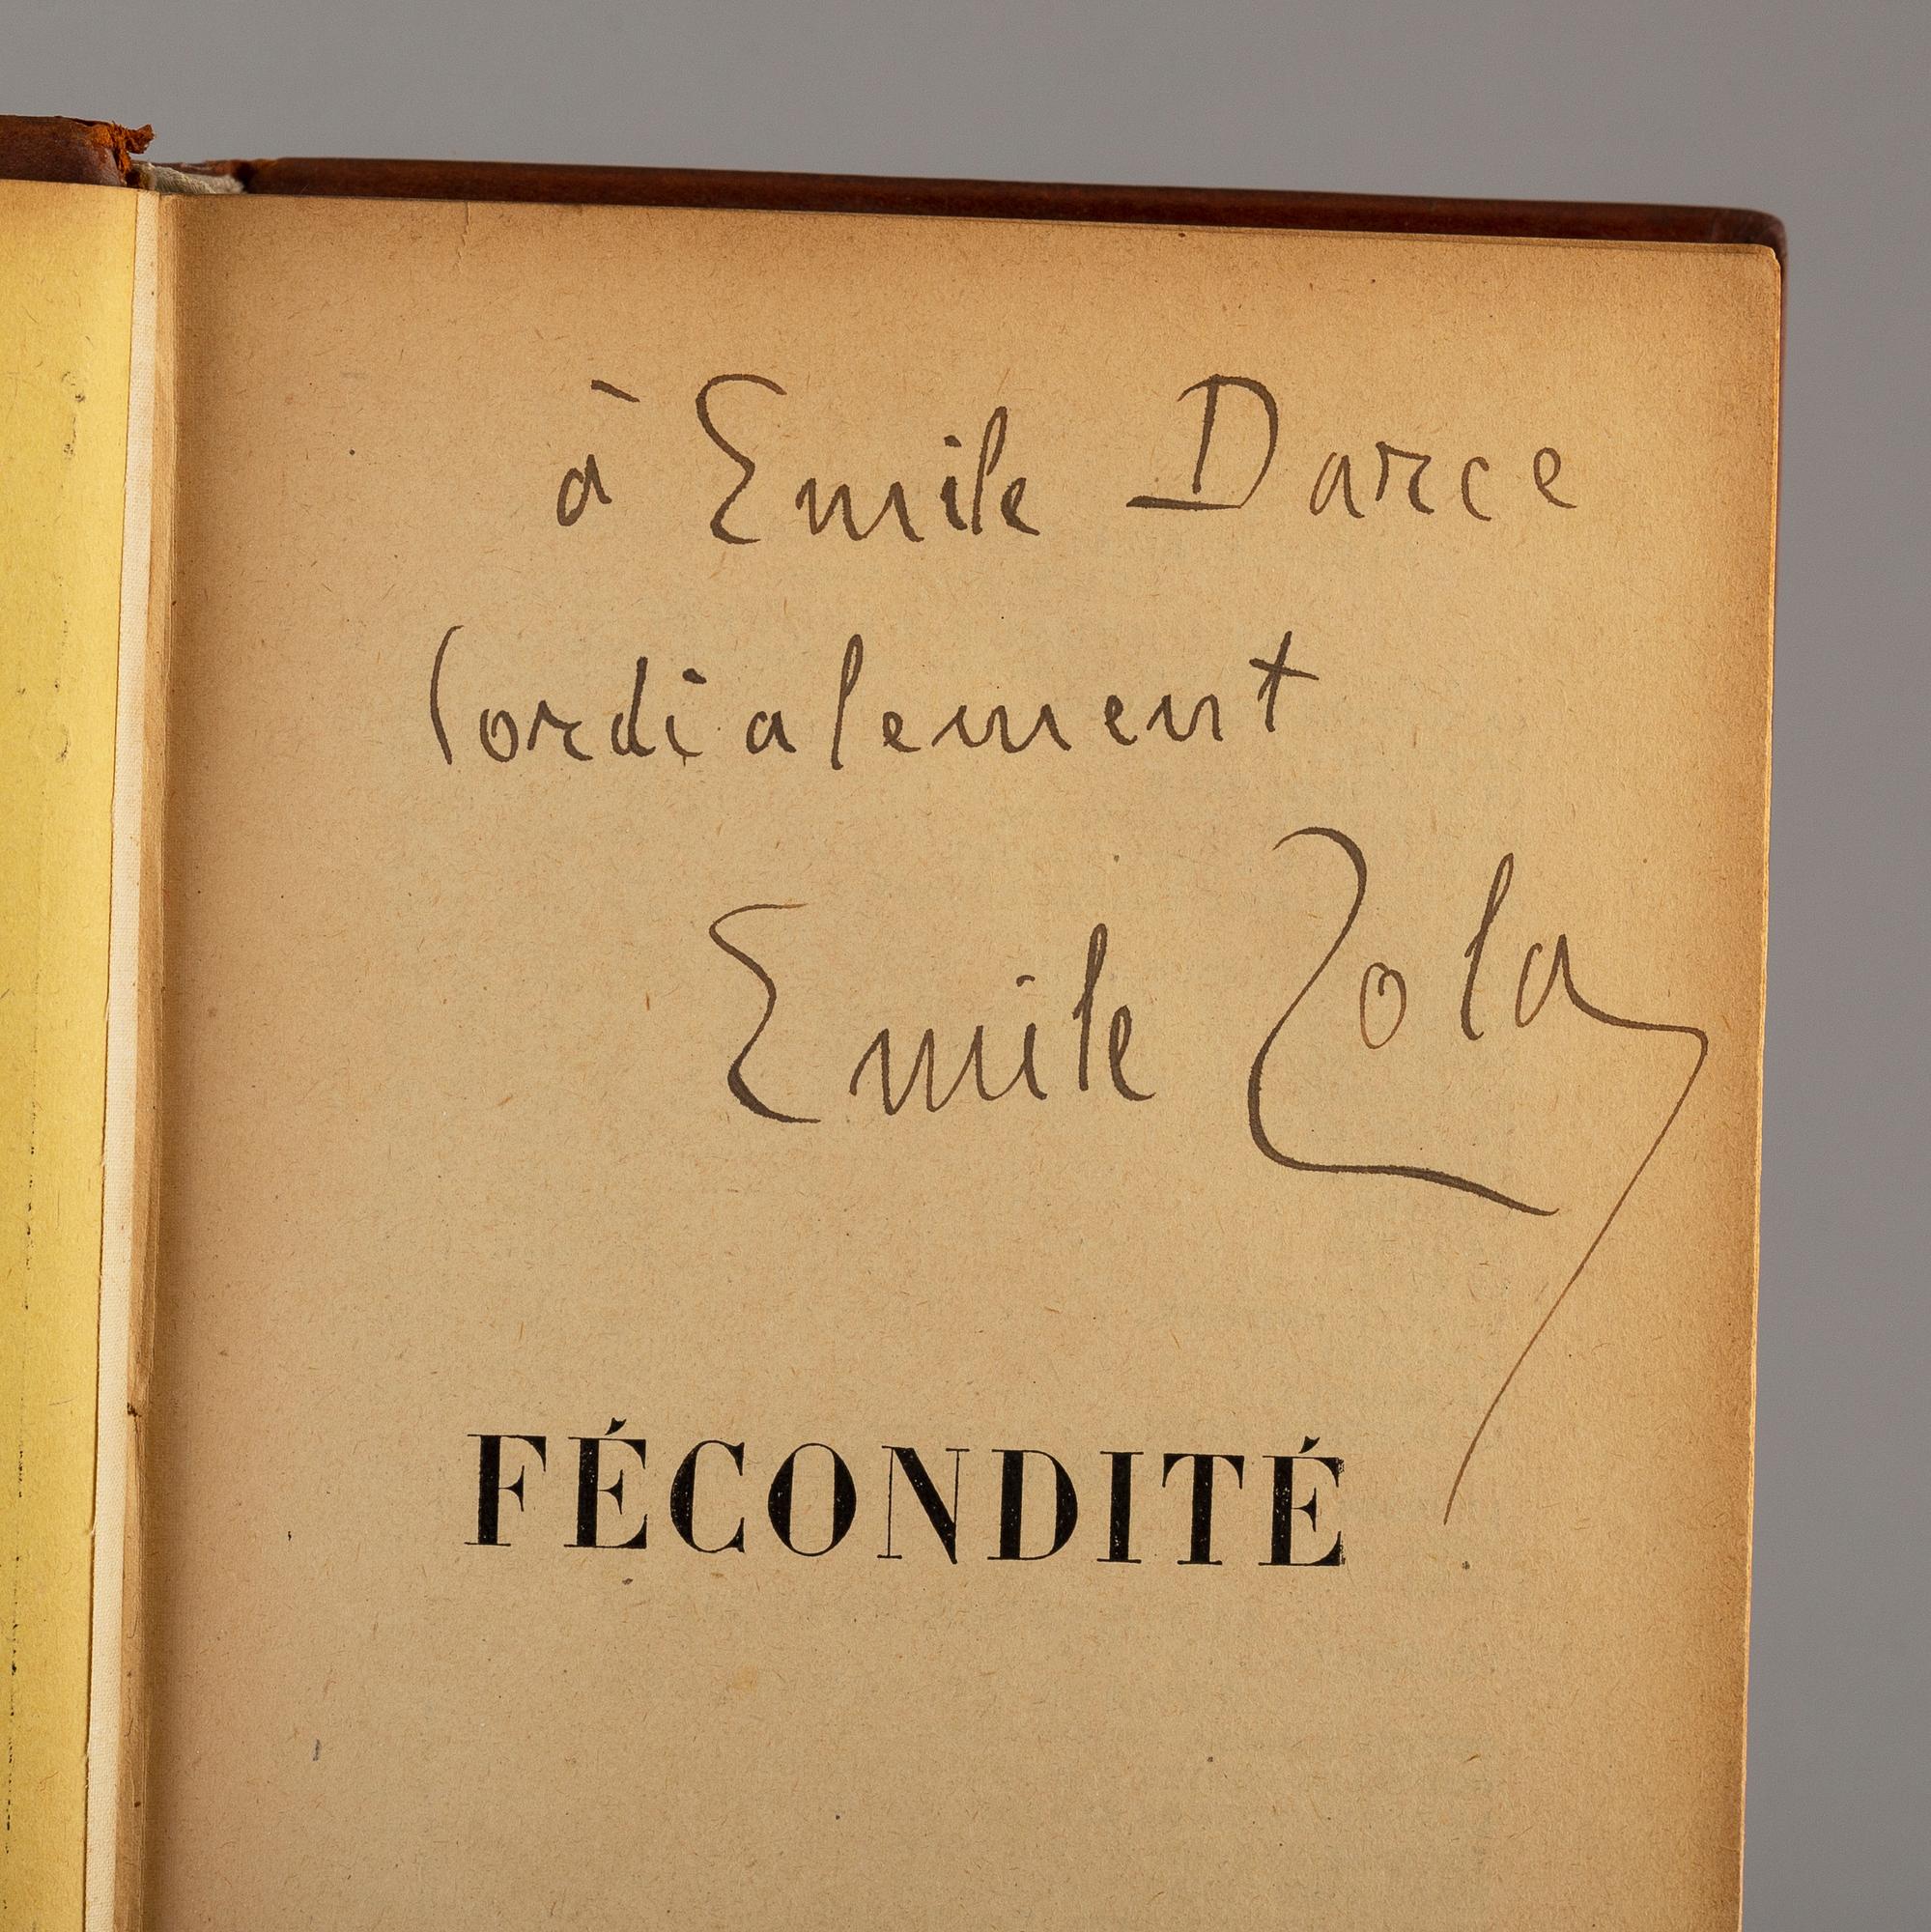 à Emile Darce
Cordialement
Emile Zola
FÉCONDITÉ